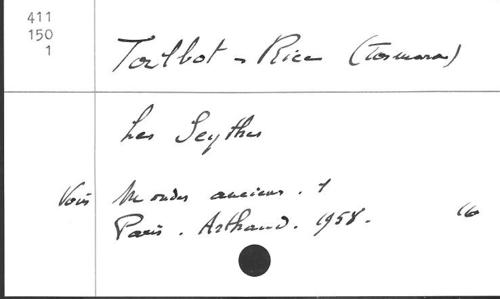 411
150
1
Talbot - Rice (Tamara)
Les Scythes
Voir Mondes anciens. 1
Paris. Arthaud. 1958.